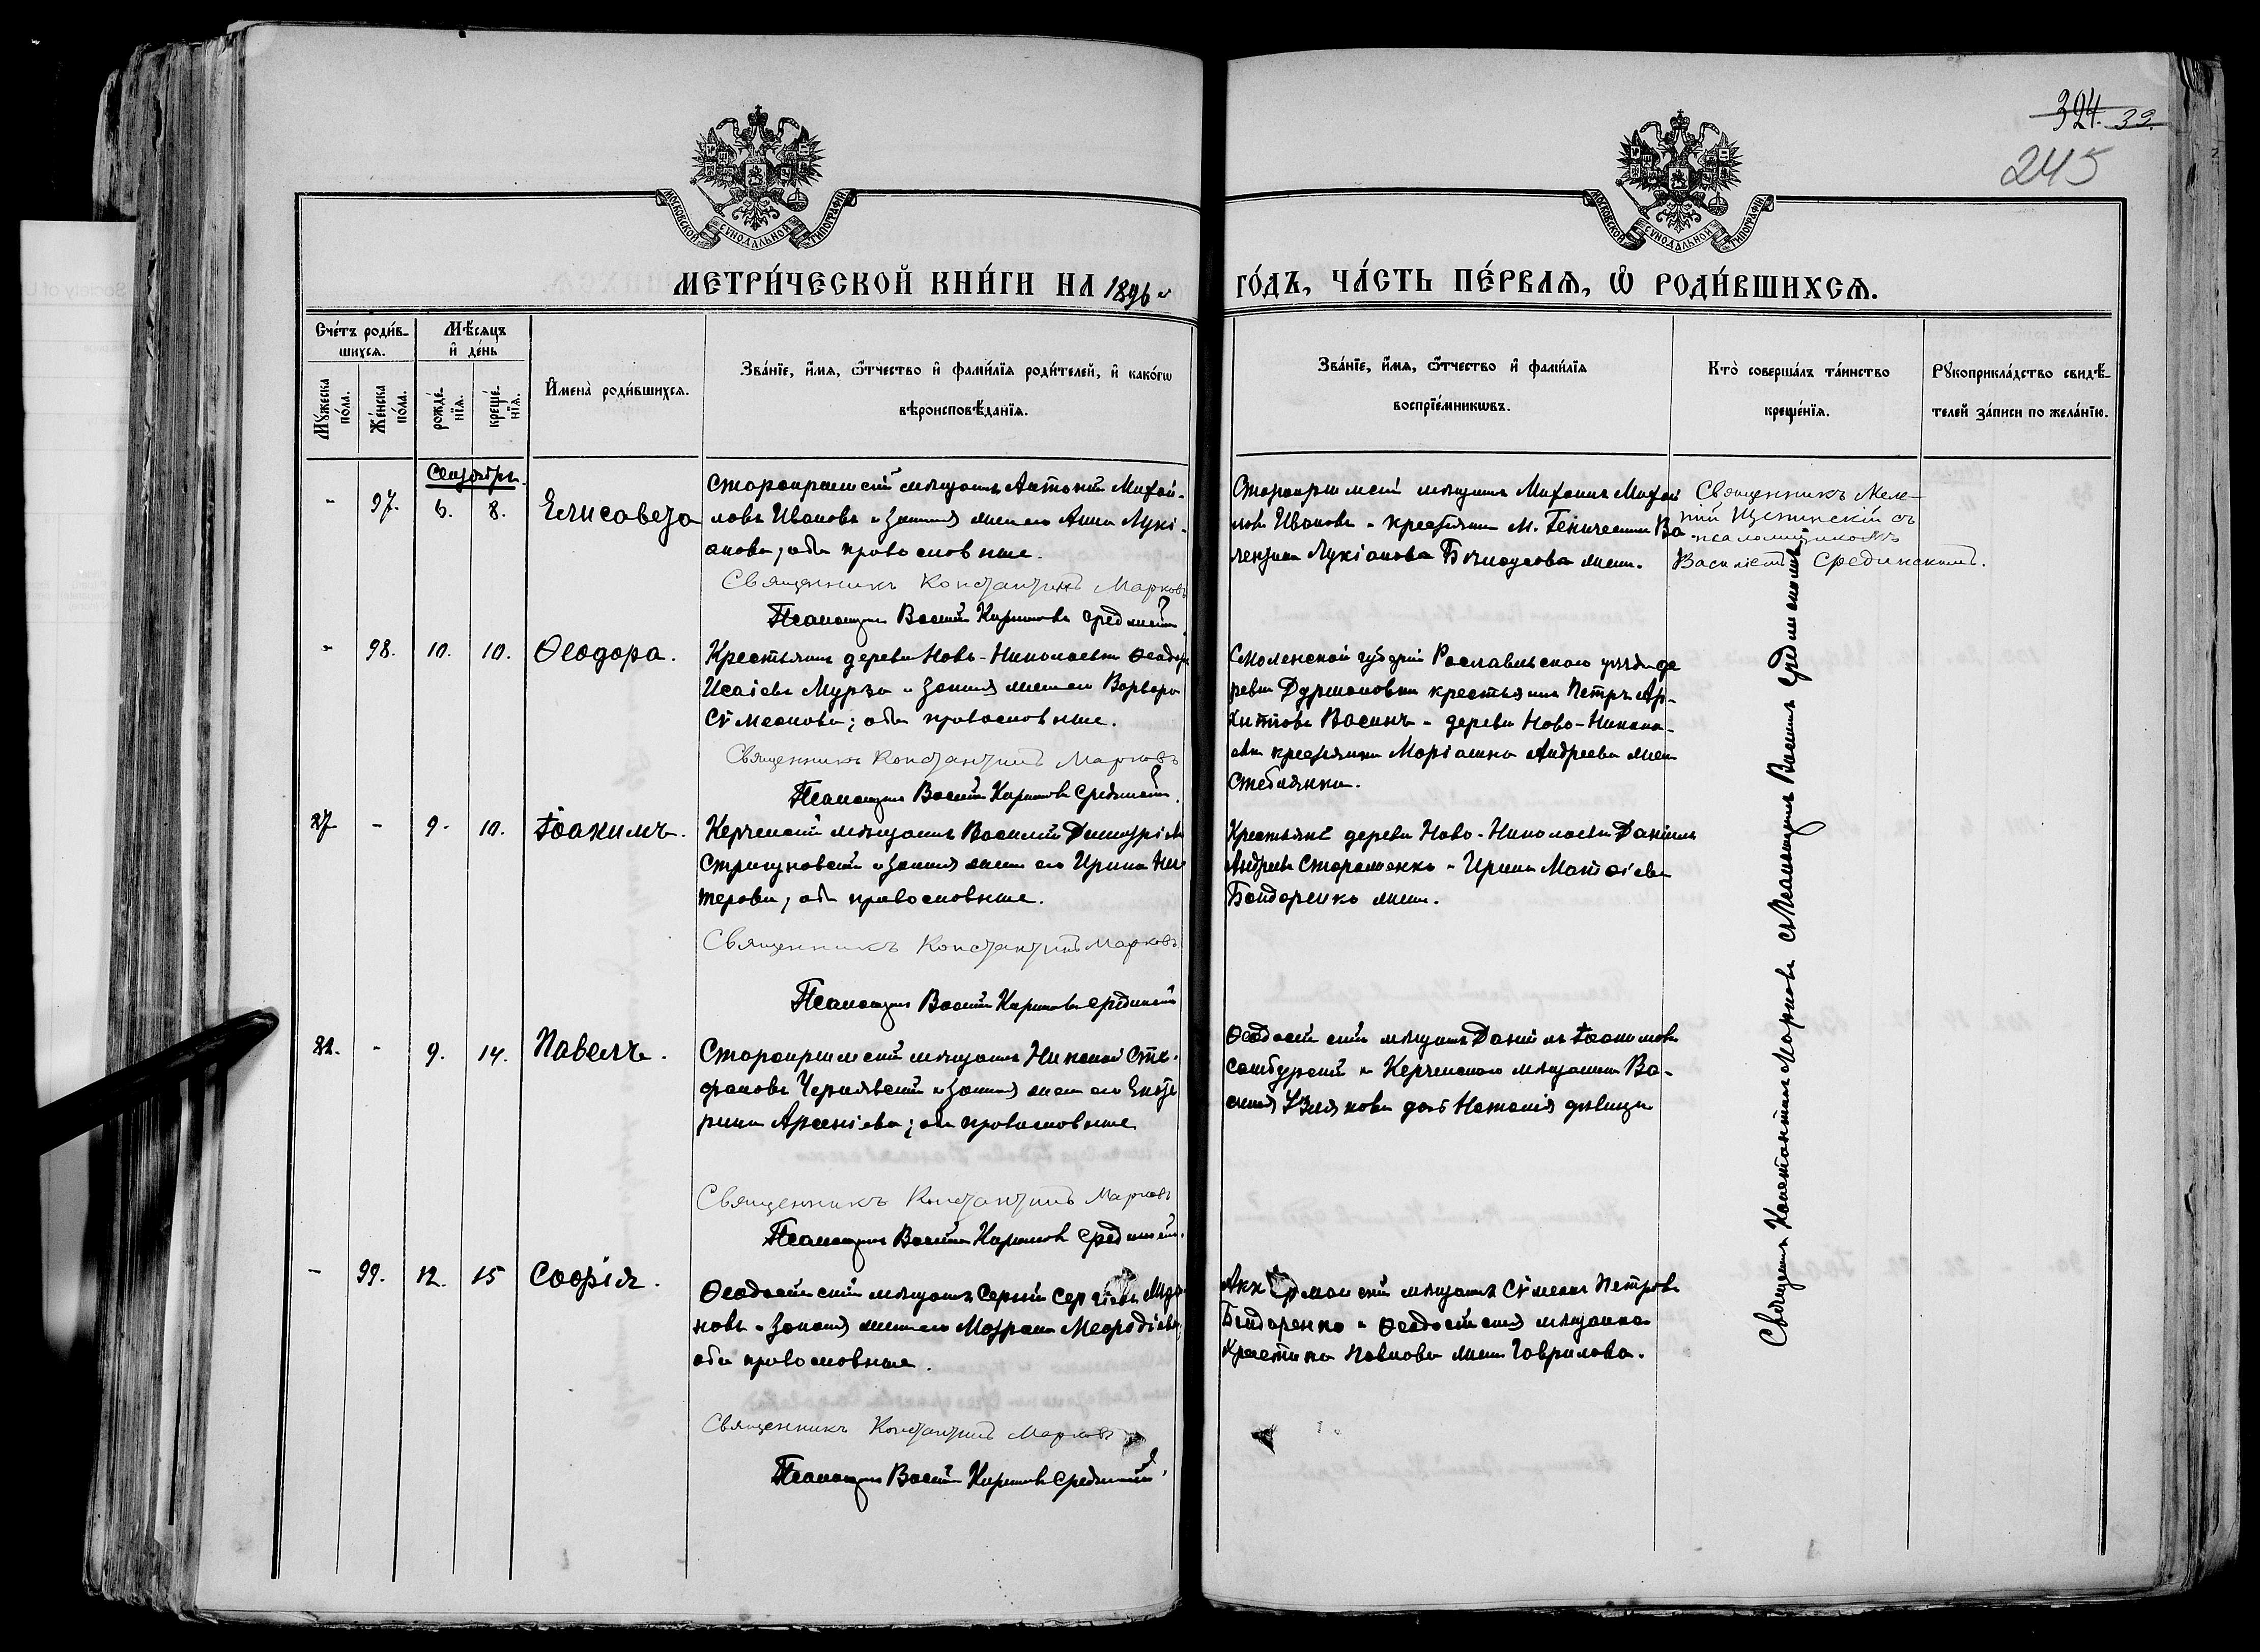 324. 39.
245
МОСКОВСКОЙ СѴНОДАЛЬНОЙ ТИПОГРАФІИ
МОСКОВСКОЙ СѴНОДАЛЬНОЙ ТИПОГРАФІИ
МЕТРИ́ЧЕСКОЙ КНИ́ГИ НА 1896 й
ГО́ДЪ, ЧА́СТЬ ПЕ́РВАЯ, Ѡ РОДИ́ВШИХСѦ.
Сче́тъ роди́в-
шихся.
Мѣ́сяцъ
и҆ де́нь
Мꙋ́жеска
по́ла.
Же́нска
по́ла.
рожде́-
нїя.
креще́-
нїя.
И҆мена̀ роди́вшихся.
Зва́нїе, и҆́мя, ѻ҆́тчество и҆ фами́лїя роди́телей, и҆ како́гѡ
вѣроисповѣ́данїя.
Зва́нїе, и҆́мя, ѻ҆́тчество и҆ фами́лїя
воспрїе́мникѡвъ.
Кто̀ соверша́лъ та́инство
креще́нїя.
Рꙋкоприкла́дство свидѣ́-
телей за́писи по жела́нїю.
Сентябрь.
- 97. 6. 8. Елисавета
Старокрымскій мѣщанинъ Антоній Михай-
ловъ Ивановъ и законная жена его Анна Лукі-
анова; оба православные.
Священникъ Константинъ Марковъ
Псаломщикъ Василій Срединскій
Старокрымскій мѣщанинъ Михаилъ Михай
ловъ Ивановъ и крестьянка м. Геническа Ва-
лентина Лукіанова жена.
Священникъ Меле-
тій Щепинскій съ
псаломщикомъ
Василіемъ Срединскимъ.
- 98. 10. 10. Ѳеодора.
Крестьянинъ деревни Ново-Николаевки Ѳеодоръ
Исаіевъ Мурза и законная жена его Варвара
Сѵмеонова; оба православные.
Священникъ Константинъ Марковъ
Псаломщикъ Василій Срединскій.
Смоленской губерніи Рославльскаго уѣзда де
ревни Дурмановки крестьянинъ Петръ Ар-
хиповъ Васинъ и деревни Ново-Никола-
евки крестьянка Маріанна Андреева жена
Стеблянка.
27. - 9. 10. Іоакимъ.
Керченскій мѣщанинъ Василій Димитріевъ
Стригуновскій и законная жена его Ирина
оба православные.
Священникъ Константинъ Марковъ
Псаломщикъ Василій Срединскій
Крестьяне деревни Ново-Николаевки Даніилъ
Андреевъ Стороженко и Ирина Матѳіева
Бондаренко жена.
- 9. 14. Павелъ.
Старокрымскій мѣщанинъ Николай Сте-
фановъ Чернявскій и законная жена его Екате
рина Арсеніева; оба православные
Священникъ Константинъ Марковъ
Псаломщикъ Василій Срединскій.
Ѳеодосійскій мѣщанинъ Даніилъ Іоакимовъ
Самбурскій и Керченскаго мѣщанина Ва-
силія дочь Наталія дѣвица
- 99. 12. 15 Софія.
Ѳеодосійскій мѣщанинъ Сергій Сергіевъ
новъ и законная жена его Матрона Меѳодіева;
оба православные.
Священникъ Константинъ Марковъ
Псаломщикъ Василій Срединскій.
Аккерманскій мѣщанинъ Сѵмеонъ Петровъ
Бондаренко и Ѳеодосійская мѣщанка
Христина Павлова жена Гаврилова.
Священникъ Константинъ Марковъ съ псаломщикомъ Василіемъ Срединскимъ